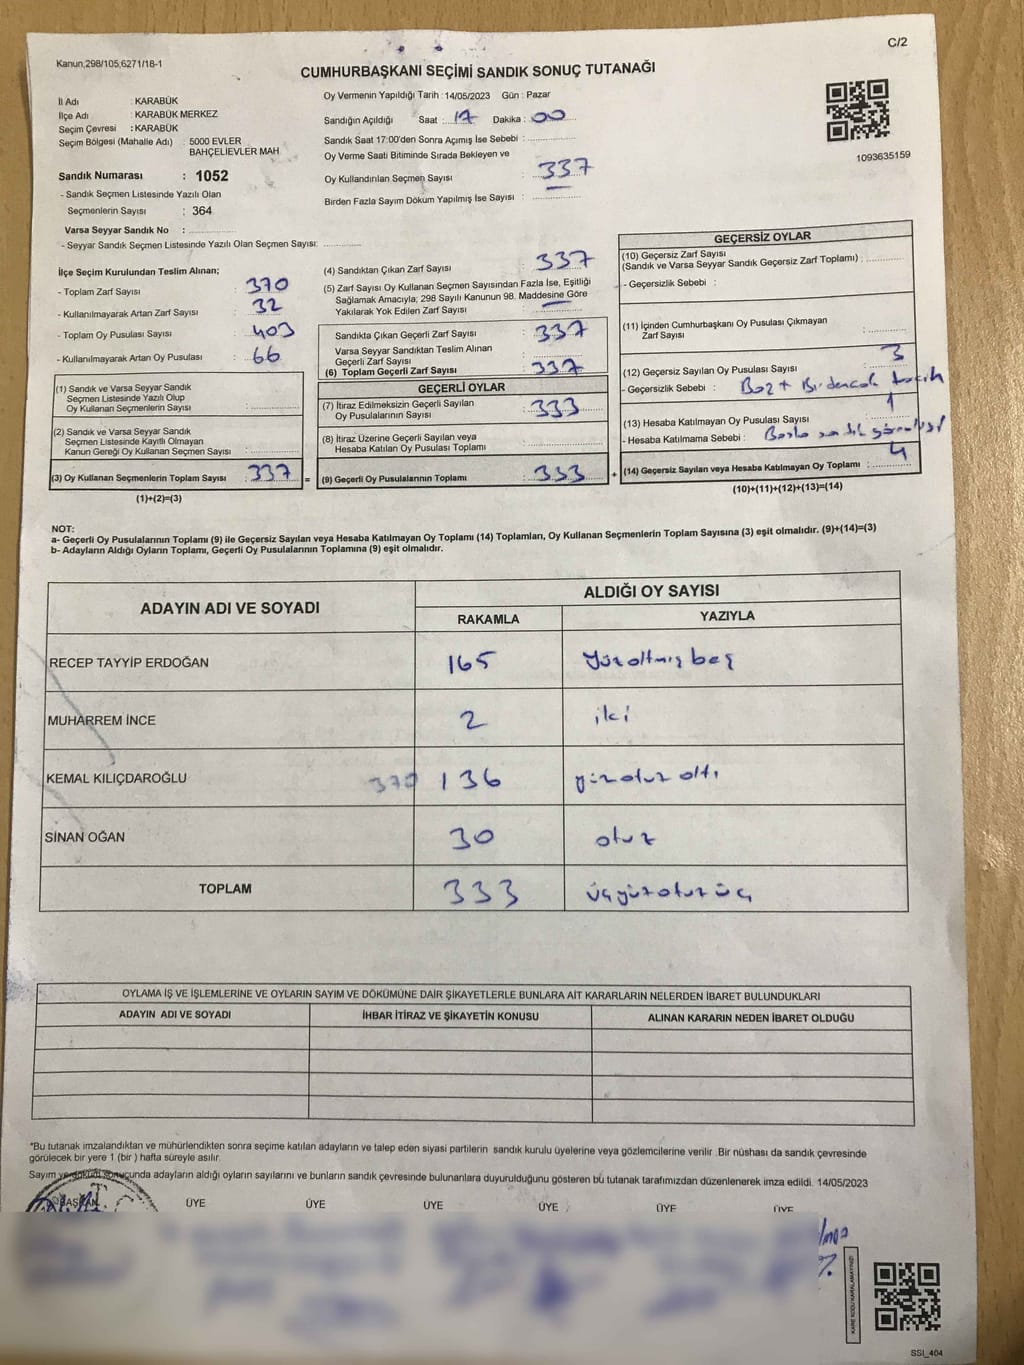 C/2
Kanun,298/105,6271/18-1
CUMHURBAŞKANI SEÇİMİ SANDIK SONUÇ TUTANAĞI
İl Adı : KARABÜK
İlçe Adı : KARABÜK MERKEZ
Seçim Çevresi : KARABÜK
Seçim Bölgesi (Mahalle Adı) : 5000 EVLER
BAHÇELİEVLER MAH
Sandık Numarası : 1052
- Sandık Seçmen Listesinde Yazılı Olan
Seçmenlerin Sayısı : 364
Varsa Seyyar Sandık No :
- Seyyar Sandık Seçmen Listesinde Yazılı Olan Seçmen Sayısı:
Oy Vermenin Yapıldığı Tarih : 14/05/2023 Gün : Pazar
Sandığın Açıldığı Saat : 17 Dakika : 00
Sandık Saat 17:00'den Sonra Açımış İse Sebebi :
Oy Verme Saati Bitiminde Sırada Bekleyen ve
Oy Kullandırılan Seçmen Sayısı : 337
Birden Fazla Sayım Döküm Yapılmış İse Sayısı :
1093635159
İlçe Seçim Kurulundan Teslim Alınan;
- Toplam Zarf Sayısı : 370
- Kullanılmayarak Artan Zarf Sayısı : 32
- Toplam Oy Pusulası Sayısı : 403
- Kullanılmayarak Artan Oy Pusulası : 66
(1) Sandık ve Varsa Seyyar Sandık
Seçmen Listesinde Yazılı Olup
Oy Kullanan Seçmenlerin Sayısı :
(2) Sandık ve Varsa Seyyar Sandık
Seçmen Listesinde Kayıtlı Olmayan
Kanun Gereği Oy Kullanan Seçmen Sayısı :
(3) Oy Kullanan Seçmenlerin Toplam Sayısı : 337
(1)+(2)=(3)
(4) Sandıktan Çıkan Zarf Sayısı : 337
(5) Zarf Sayısı Oy Kullanan Seçmen Sayısından Fazla İse, Eşitliği
Sağlamak Amacıyla; 298 Sayılı Kanunun 98. Maddesine Göre
Yakılarak Yok Edilen Zarf Sayısı : —
Sandıkta Çıkan Geçerli Zarf Sayısı : 337
Varsa Seyyar Sandıktan Teslim Alınan
Geçerli Zarf Sayısı :
(6) Toplam Geçerli Zarf Sayısı : 337
GEÇERLİ OYLAR
(7) İtiraz Edilmeksizin Geçerli Sayılan
Oy Pusulalarının Sayısı : 333
(8) İtiraz Üzerine Geçerli Sayılan veya
Hesaba Katılan Oy Pusulaları Toplamı :
= (9) Geçerli Oy Pusulalarının Toplamı : 333 +
GEÇERSİZ OYLAR
(10) Geçersiz Zarf Sayısı
(Sandık ve Varsa Seyyar Sandık Geçersiz Zarf Toplamı) :
- Geçersizlik Sebebi :
(11) İçinden Cumhurbaşkanı Oy Pusulası Çıkmayan
Zarf Sayısı :
(12) Geçersiz Sayılan Oy Pusulası Sayısı : 3
- Geçersizlik Sebebi : Boş + Birdençok tercih
(13) Hesaba Katılmayan Oy Pusulası Sayısı : 1
- Hesaba Katılmama Sebebi : Başka sandık
(14) Geçersiz Sayılan veya Hesaba Katılmayan Oy Toplamı : 4
(10)+(11)+(12)+(13)=(14)
NOT:
a- Geçerli Oy Pusulalarının Toplamı (9) ile Geçersiz Sayılan veya Hesaba Katılmayan Oy Toplamı (14) Toplamları, Oy Kullanan Seçmenlerin Toplam Sayısına (3) eşit olmalıdır. (9)+(14)=(3)
b- Adayların Aldığı Oyların Toplamı, Geçerli Oy Pusulalarının Toplamına (9) eşit olmalıdır.
ADAYIN ADI VE SOYADI ALDIĞI OY SAYISI
RAKAMLA YAZIYLA
RECEP TAYYİP ERDOĞAN 165 Yüzaltmış beş
MUHARREM İNCE 2 iki
KEMAL KILIÇDAROĞLU 370 136 yüzotuz altı
SİNAN OĞAN 30 otuz
TOPLAM 333 üçyüzotuz üç
OYLAMA İŞ VE İŞLEMLERİNE VE OYLARIN SAYIM VE DÖKÜMÜNE DAİR ŞİKAYETLERLE BUNLARA AİT KARARLARIN NELERDEN İBARET BULUNDUKLARI
ADAYIN ADI VE SOYADI İHBAR İTİRAZ VE ŞİKAYETİN KONUSU ALINAN KARARIN NEDEN İBARET OLDUĞU
*Bu tutanak imzalandıktan ve mühürlendikten sonra seçime katılan adayların ve talep eden siyasi partilerin sandık kurulu üyelerine veya gözlemcilerine verilir .Bir nüshası da sandık çevresinde
görülecek bir yere 1 (bir ) hafta süreyle asılır.
Sayım ve döküm sonucunda adayların aldığı oyların sayılarını ve bunların sandık çevresinde bulunanlara duyurulduğunu gösteren bu tutanak tarafımızdan düzenlenerek imza edildi. 14/05/2023
BAŞKAN ÜYE ÜYE ÜYE ÜYE ÜYE ÜYE
KARE KODU KARALAMAYINIZ!
SSI_404